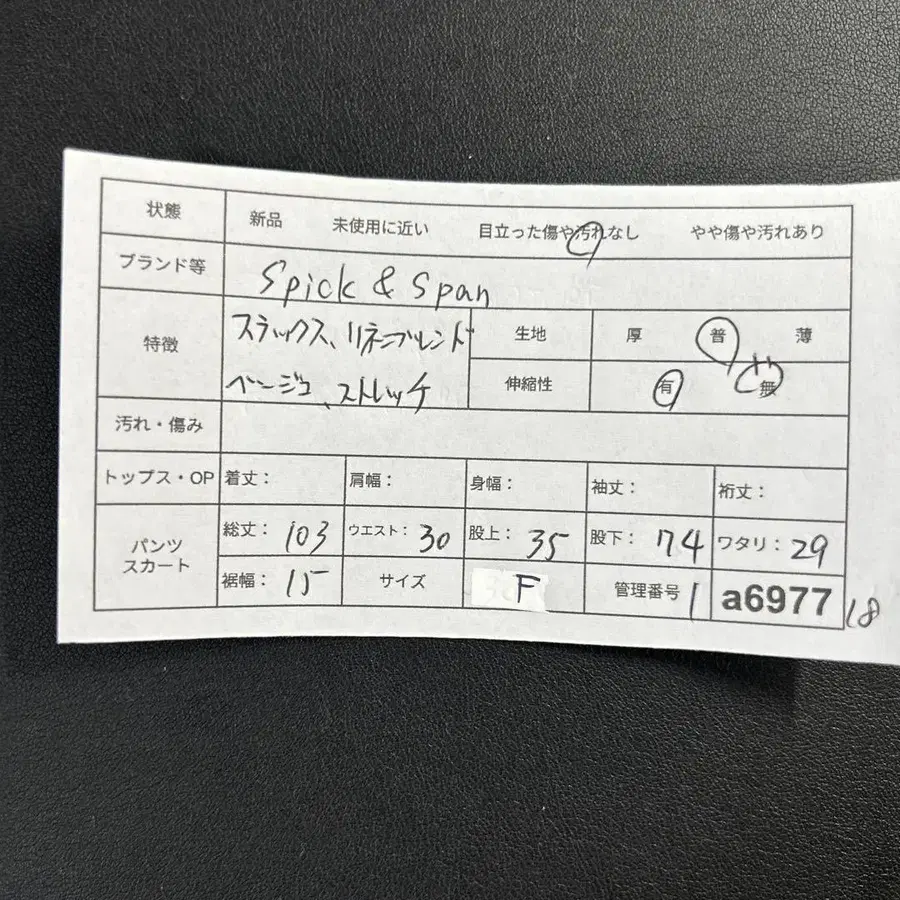 状態 新品 未使用に近い 目立った傷や汚れなし やや傷や汚れあり
ブランド等 Spick & Span
特徴 スラックス、リネンブレンド 生地 厚 普 薄
ベージュ、ストレッチ 伸縮性 有 無
汚れ・傷み
トップス・OP 着丈: 肩幅: 身幅: 袖丈: 裄丈:
パンツ スカート 総丈: 103 ウエスト: 30 股上: 35 股下: 74 ワタリ: 29
裾幅: 15 サイズ F 管理番号 1 a6977 18